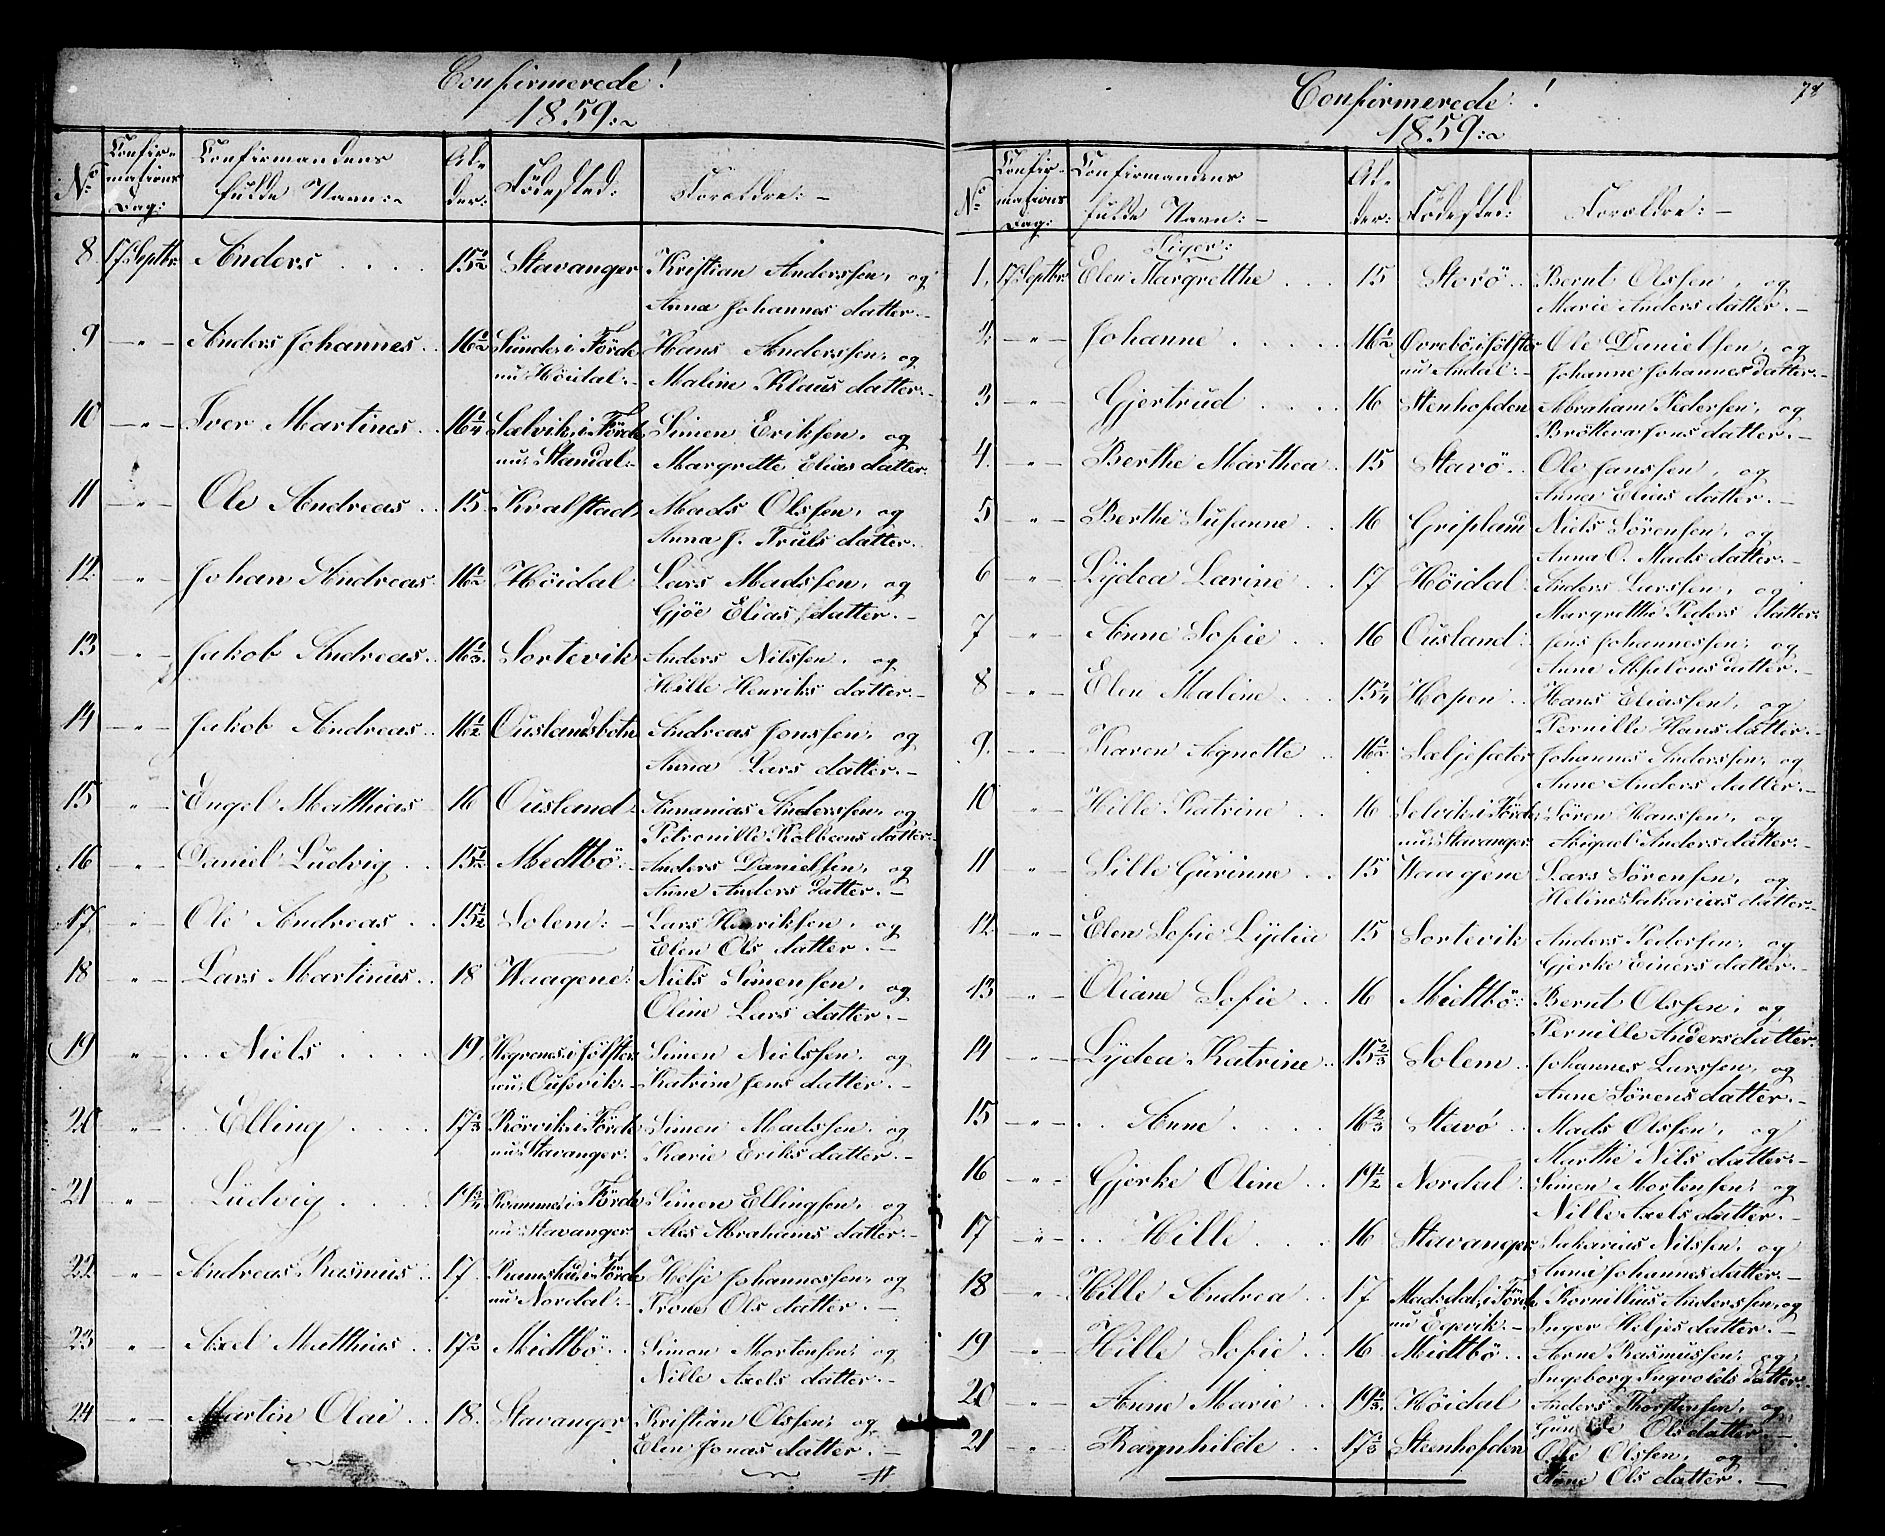 Confirmerede!
1859:~
No Confirmations Dag: Confirmandens fulde Navn:~ Alder: Födested: Foreldre:-
8 17 Septbr. Anders 15 1/2 Stavanger Kristian Anderssen, og
Anna Johannes datter.-
9 -"- Anders Johannes 16 1/2 Sunde i Förde Hans Anderssen, og
nu Höidal:- Malin Klaus datter.-
10 -"- Iver Martines 16 1/4 Sælvik, i Förde Simen Eriksen, og
nu, Standal:- Margrette Elias datter.
11 -"- Ole Andreas 15 Kvalstad Mads Olssen, og
Anna J. Truls datter.
12 -"- Johan Andreas 16 1/2 Höidal Lars Madssen, og
Gjöe Elias datter.-
13 -"- Jakob Andreas 16 1/3 Sortevik Anders Nilssen, og
Hille Henriks datter.-
14 -"- Jakob Andreas 16 1/2 Ouslandsbotn Andreas Jonssen, og
Anna Lars datter.-
15 -"- Engel Matthias 16 Ousland Annanias Anderssen, og
Petronille Kolbeens datter.-
16 -"- Daniel Ludvig 15 1/2 Medtbö:- Anders Danielsen, og
Anne Anders datter.-
17 -"- Ole Andreas 15 1/2 Solem:- Lars Henriksen, og
Elen Ols datter.-
18 -"- Lars Martinus 18 Waagene: Niels Simensen, og
Oline Lars datter.-
19 -"- Niels 19 i Jölster Simen Nielssen, og
nu, Ousvik:- Katrine Jens datter.-
20 -"- Elling 17 1/3 Rörvik, i Förde Simen Madssen, og
nu Stavanger: Karie Eriks datter.-
21 -"- Ludvig i Förde Simen Ellingsen, og
nu Stavanger Ales Abrahams datter:-
22 -"- Andreas Rasmus 17 Ramshus, i Förde Helje Johannessen, og
nu Nordal:- Trone Ols datter.-
23 -"- Axel Matthias 17 1/2 Midtbö Simon Mortensen, og
Nille Axels datter.-
24 -"- Martin Olai 18. Stavanger Kristian Olssen, og
Elen Jonas datter.-
Confirmerede:!
1859:~
78
No Confirmations Dag: Confirmandens fulde Navn:- Alder: Födested: Foreldre:-
Piger:
1, 17 Septbr. Elen Margrethe 15 Storö Bernt Olssen, og
Marie Anders datter.-
2: -"- Johanne 16 1/2 Övrebö, i Jölster Ole Danielsen, og
nu Andal:- Johanne Johannes datter:-
3 -"- Gjertrud 16 Stenhofden Abraham Pedersen, og
Brötteva Jons datter.-
4. -"- Berthe Marthea 15 Stavö Ole Janssen, og
Anna Elias datter.-
5 -"- Berthe Susanne 16 Gripland Niels Sörensen, og
Anna O. Mads datter.-
6 -"- Lydea Larine 17 Höidal Anders Larssen, og
Margrethe Peders datter.
7 -"- Anne Sofie 16 Ousland: Jens Johannessen, og
Anne Absalons datter.-
8 -"- Elen Maline 15 1/4 Hopen Hans Eliassen, og
Pernille Hans datter.-
9. -"- Karen Agnette 16 1/2 Sæljesæter Johannes Anderssen, og
Anne Anders datter.-
10 -"- Hille Katrine 16 Selvik, i Förde Sören Hanssen, og
nu, Stavanger Abigael Anders datter:-
11 -"- Sille Gurinne 15 Waagene Lars Sörensen, og
Heline Sakarias datter.-
12. -"- Elen Sofie Lydia 15 Sortevik Anders Pedersen, og
Gjerke Einers datter.-
13 -"- Oliane Sofie 16 Midtbö: Bernt Olssen, og
Pernille Anders datter.
14 -"- Lydea Katrine 15 2/3 Solem Johannes Larssen, og
Anne Sörens datter.-
15 -"- Anne 16 2/3 Stavö Mads Olssen, og
Marthe Nils datter.-
16 -"- Gjerke Oline 19 1/2 Nordal Simen Mortensen, og
Nille Axels datter.-
17 -"- Hille 16 Stavanger Sakarias Nilssen, og
Anna Johannes datter.-
18 -"- Hille Andrea 17 Madsdal, i Förde Kornillius Anderssen, og
nu Eqevik.- Inger Heljes datter.-
19 -"- Hille Sofie 16 Midtbö Arne Rasmussen, og
Ingeborg Ingvolds datter.-
20 -"- Anne Marie 19 1/3 Höidal Anders Thorstensen, og
Ols datter.-
21 -"- Ragnhilde 17 1/3 Steenhofden Ole Olssen, og
Anne Ols datter.-